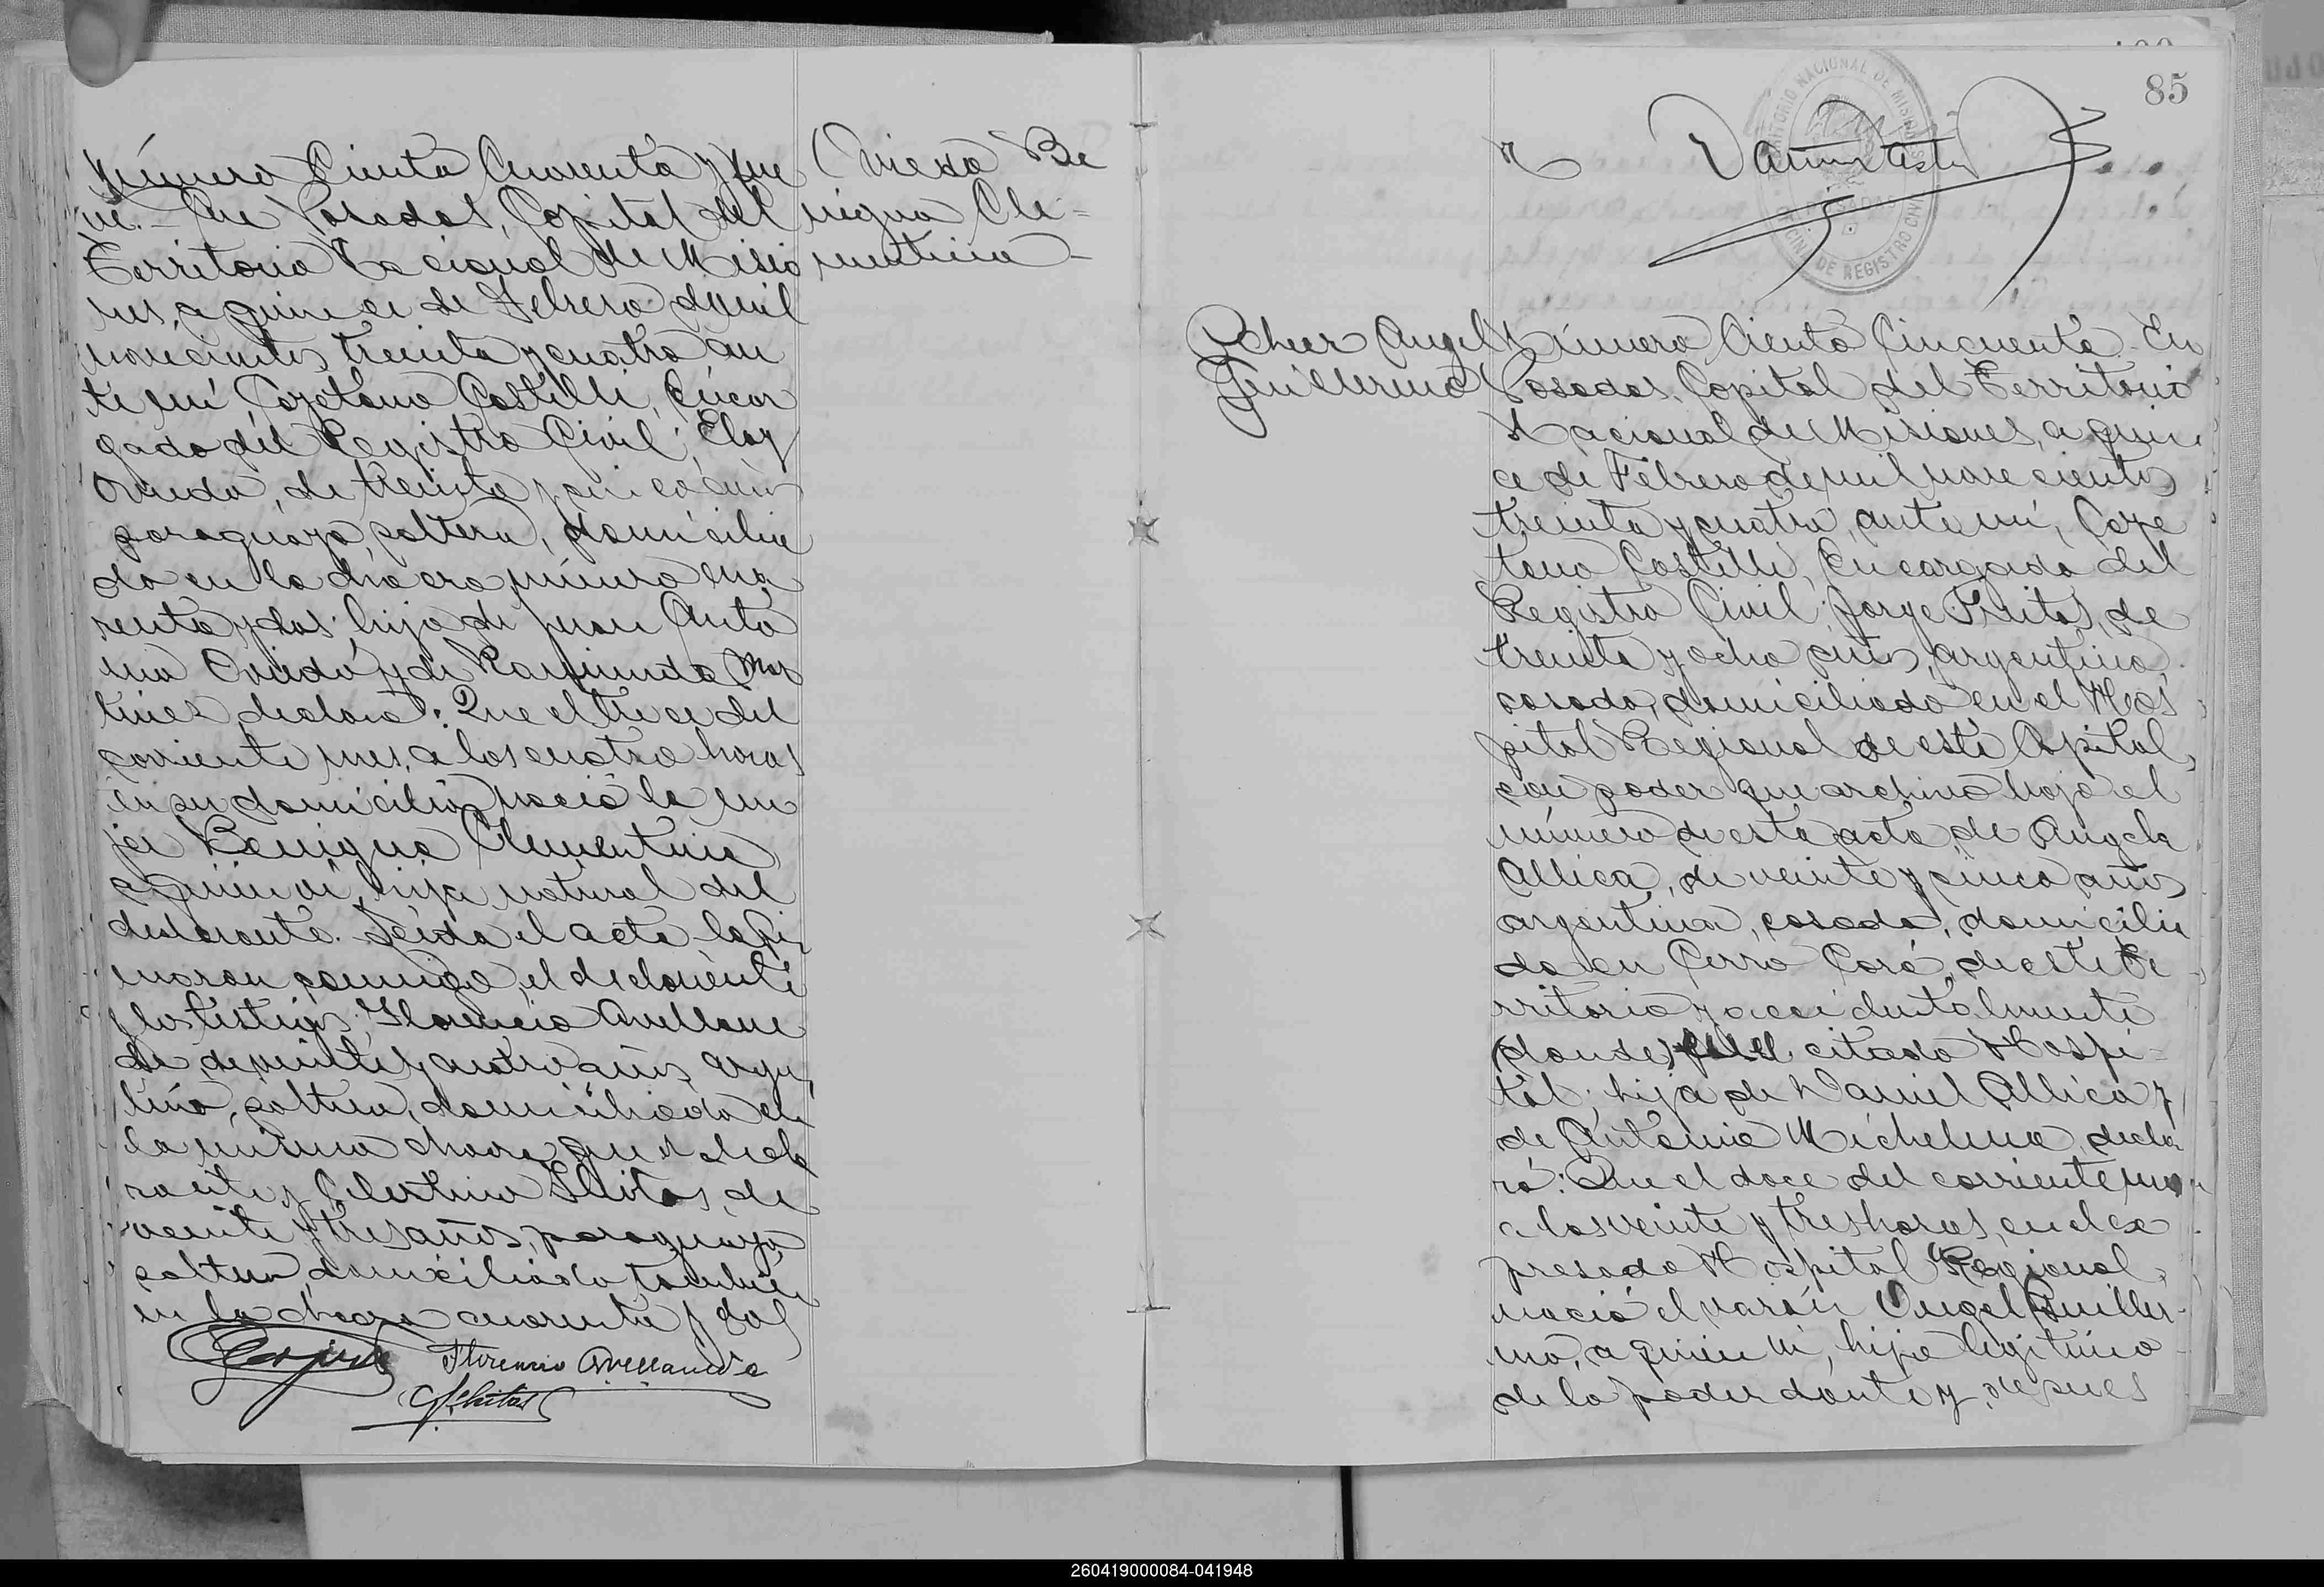 Número Ciento Cuarenta y nue
ve.- En Posadas, Capital del
Territorio Nacional de Misio
nes, a quince de Febrero de mil
novecientos treinta y cuatro an
te mí Cayetano Castelli, Encar
gado del Registro Civil; Eloy
Oviedo, de treinta y cinco años
paraguayo, soltero, domicilia
do en la chacra número cua
renta y dos; hijo de Juan Anto
nio Oviedo y de Raimunda Mar
tinez, declaró: Que el trece del
corriente mes, a las cuatro horas
en su domicilio, nació la mu
jer Benigna Clementina
a quien ví, hija natural del
declarante. Leída el acta la fir
maron conmigo, el declarante
y los testigos Florencio Avellane
da, de veinte y cuatro años, argen
tino, soltero, domiciliado en
la misma chacra que el decla
rante y Celestino Fleitas, de
veinte y tres años, paraguayo
soltero, domiciliado también
en la chacra cuarenta y dos
Florencio Avellaneda
Oviedo Be
nigna Cle=
mentina-
85
TERRITORIO NACIONAL DE MISIONES
POSADAS
OFICINA DE REGISTRO CIVIL
Angel
Guillermo
Número Ciento Cincuenta - En
Posadas, Capital del Territorio
Nacional de Misiones, a quin
ce de Febrero de mil novecientos
treinta y cuatro, ante mí, Caye
tano Castelli, Encargado del
Registro Civil; Jorge Freitas, de
treinta y ocho años, argentino,
casado, domiciliado en el Hos
pital Regional de esta Capital,
con poder que archivo bajo el
número de esta acta, de Angela
Allica, de veinte y cinco años
argentina, casada, domicilia
da en Cerro Corá, de este Te
rritorio y accidentalmente
(donde) en el citado Hospi=
tal; hija de Daniel Allica y
de Antonia Michelina, decla
ró: Que el doce del corriente mes
a las veinte y tres horas, en el ex
presado Hospital Regional,
nació el varón Angel Guiller-
mo, a quien ví, hijo legítimo
de la poderdante y, después
260419000084-041948